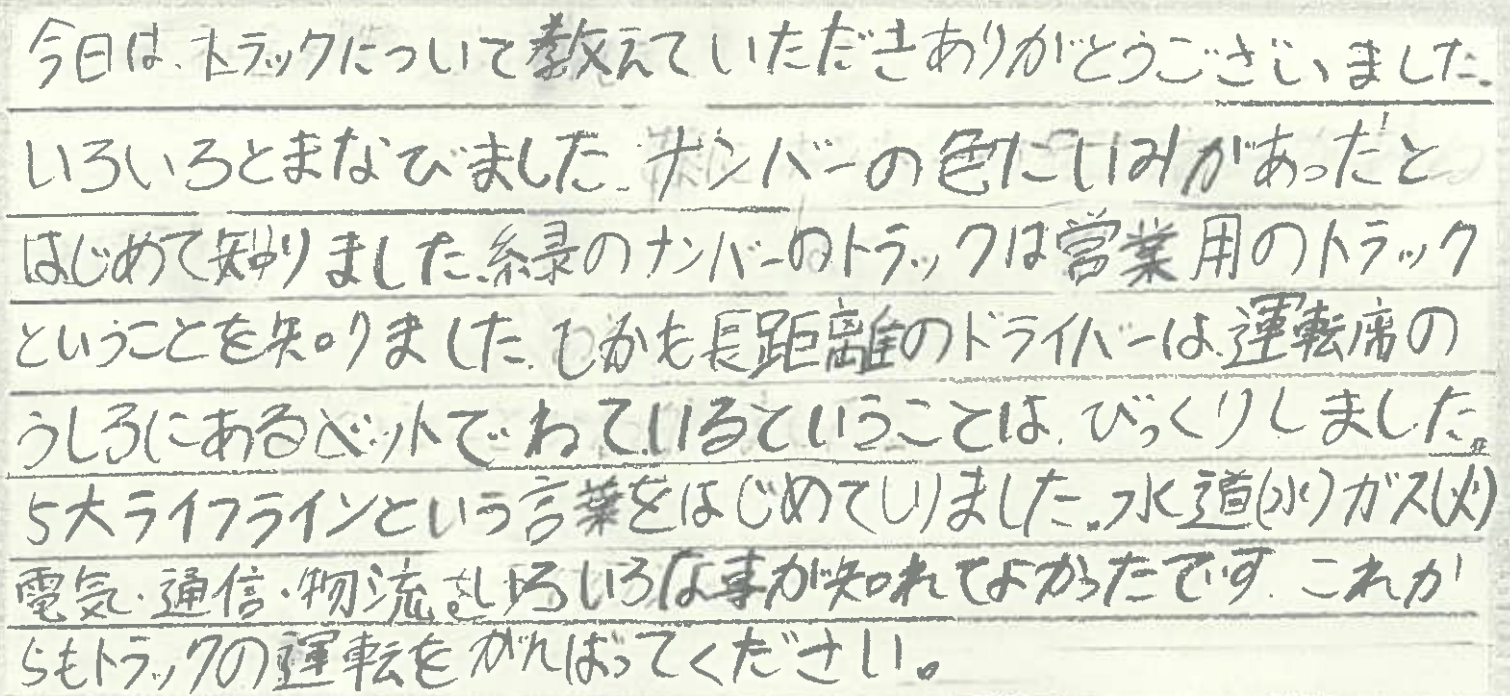 今日は、トラックについて教えていただきありがとうございました。
いろいろとまなびました。ナンバーの色にいみがあったと
はじめて知りました。緑のナンバーのトラックは営業用のトラック
ということを知りました。しかも長距離のドライバーは、運転席の
うしろにあるベットでねているということは、びっくりしました。
5大ライフラインという言葉をはじめてしりました。水道(水)ガス(火)
電気・通信・物流。いろいろな事が知れてよかったです。これか
らもトラックの運転をがんばってください。